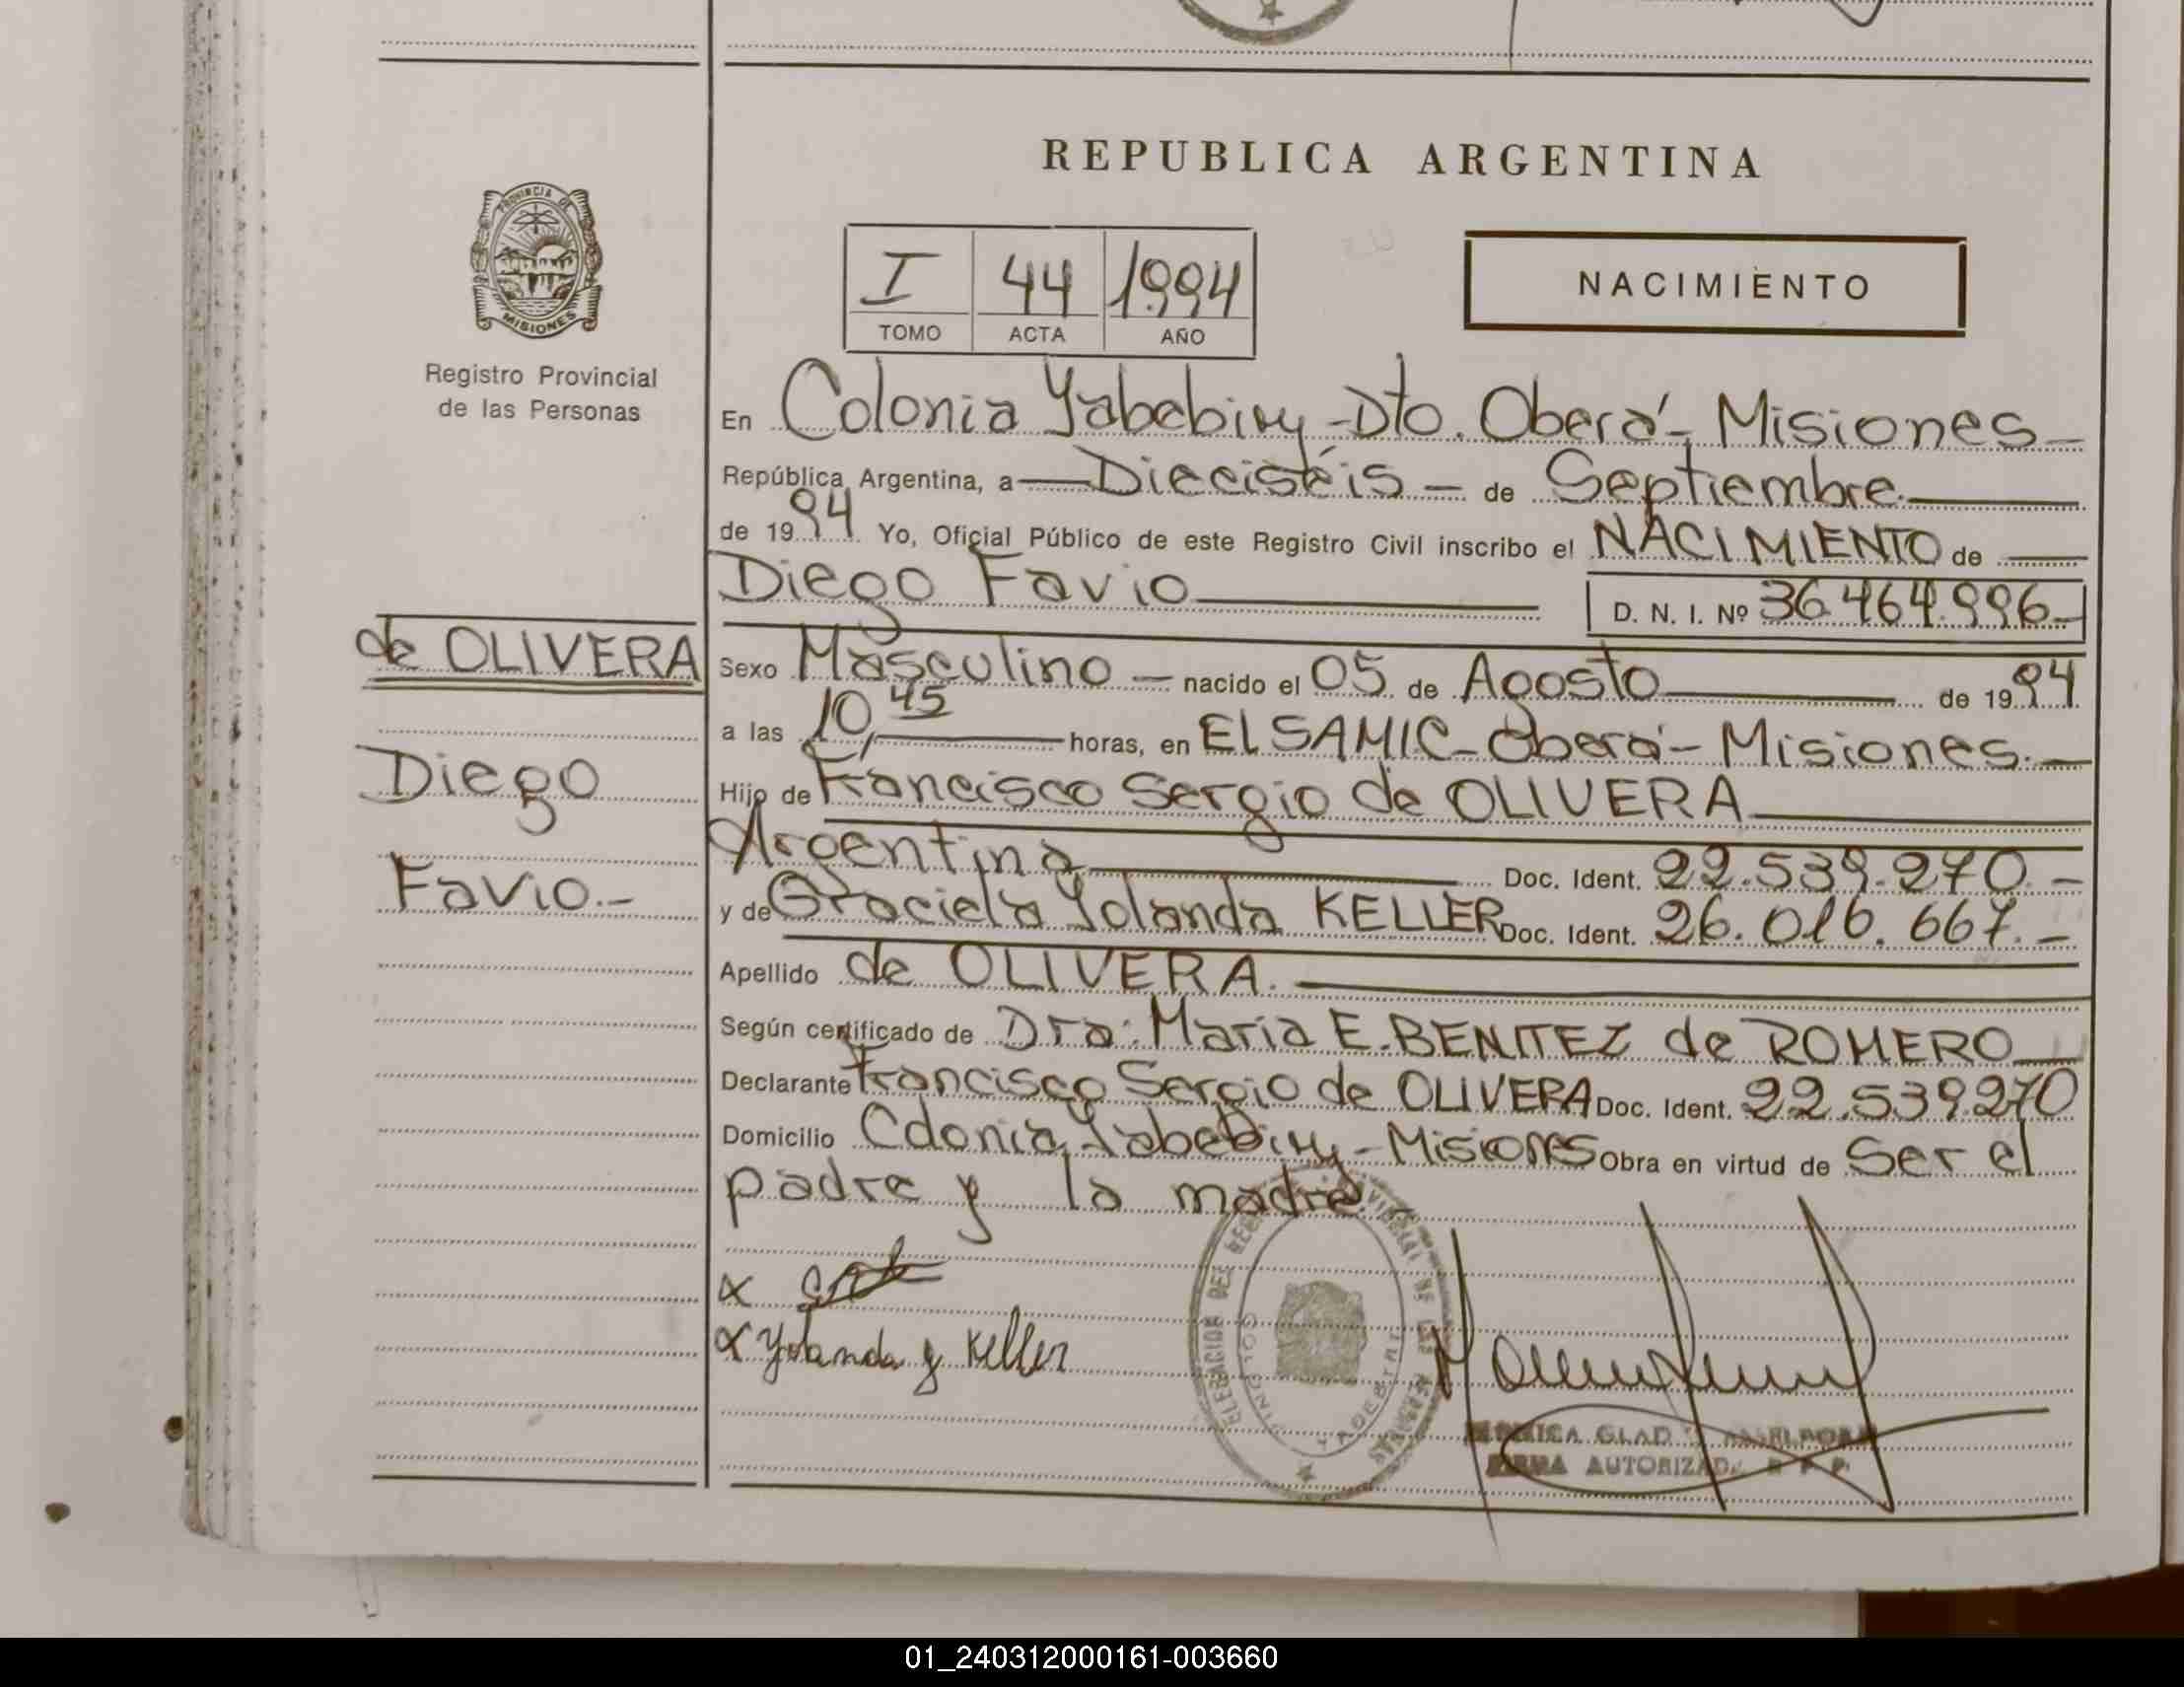 REPUBLICA ARGENTINA
PROVINCIA DE
MISIONES
Registro Provincial
de las Personas
I 44 1994
TOMO ACTA AÑO
NACIMIENTO
En Colonia Yabebiry - Dto. Oberá - Misiones -
República Argentina, a — Dieciséis - de Septiembre
de 1994 Yo, Oficial Público de este Registro Civil inscribo el NACIMIENTO de
Diego Favio D. N. I. Nº 36.464.996.-
de OLIVERA
Diego
Favio.-
Sexo Masculino - nacido el 05 de Agosto de 1994
a las 10,45 horas, en El SAMIC - Oberá - Misiones.-
Hijo de Francisco Sergio de OLIVERA
Argentina Doc. Ident. 22.539.270.-
y de Graciela Yolanda KELLER Doc. Ident. 26.016.667.-
Apellido de OLIVERA.
Según certificado de Dra: Maria E. BENITEZ de ROMERO
Declarante Francisco Sergio de OLIVERA Doc. Ident. 22.539.270
Domicilio Colonia Yabebiry - Misiones Obra en virtud de Ser el
padre y la madre
x
x Yolanda g Keller
FIRMA AUTORIZADA R P P
01_240312000161-003660